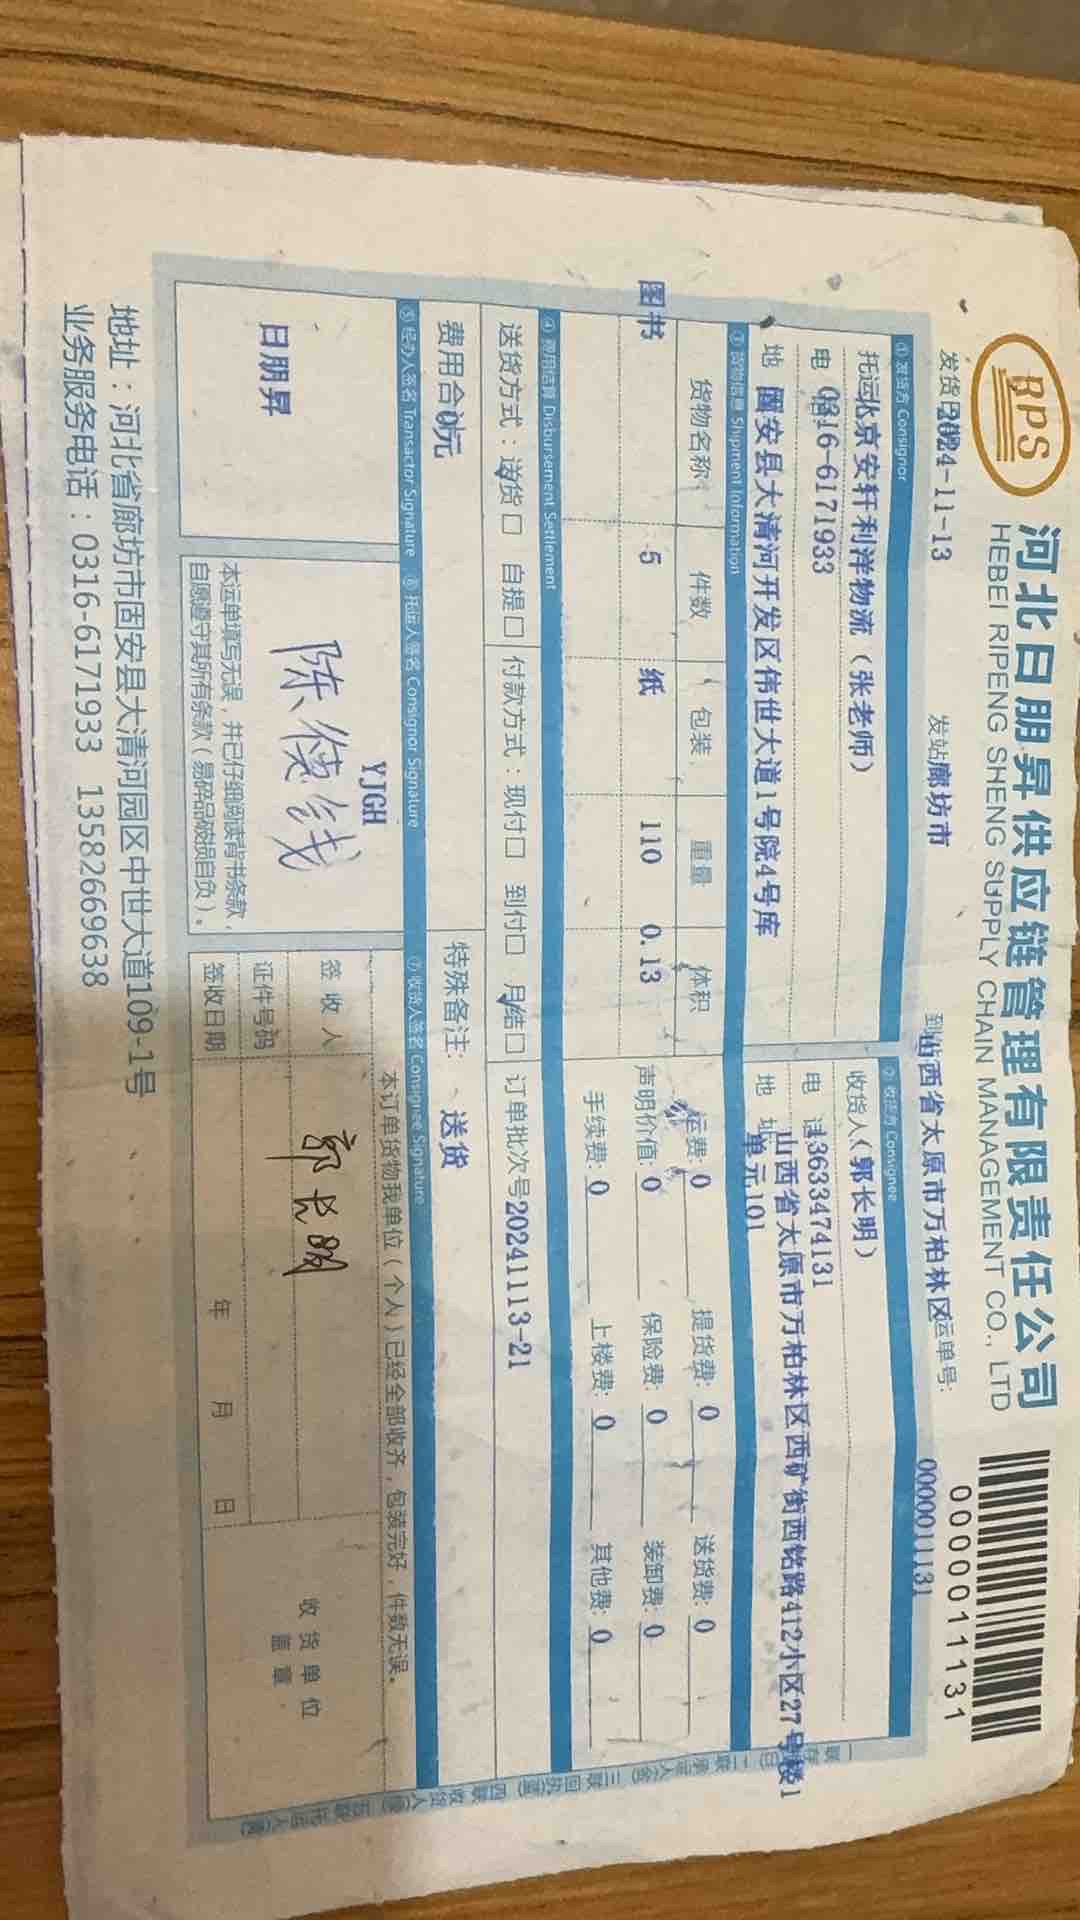 RPS
河北日朋昇供应链管理有限责任公司
HEBEI RIPENG SHENG SUPPLY CHAIN MANAGEMENT CO., LTD
0000011131
发货 2024-11-13 发站 廊坊市 到站 山西省太原市万柏林区 运单号: 0000011131
① 发货方 Consignor
② 收货方 Consignee
托运 北京安轩利洋物流（张老师）
收货人（郭长明）
电 0316-6171933
电 话 13633474131
地 固安县大清河开发区伟世大道1号院4号库
地 址 山西省太原市万柏林区西矿街西铭路412小区27号楼1
单元101
③ 货物信息 Shipment Information
货物名称 件数 包装 重量 体积
图书 5 纸 110 0.13
运费: 0 提货费: 0 送货费: 0
声明价值: 0 保险费: 0 装卸费: 0
手续费: 0 上楼费: 0 其他费: 0
④ 费用结算 Disbursement Settlement
送货方式：送货☑ 自提□ 付款方式：现付□ 到付□ 月结☑ 订单批次号 20241113-21
费用合 0元
特殊备注: 送货
⑤ 经办人签名 Transactor Signature
⑥ 托运人签名 Consignor Signature
⑦ 收货人签名 Consignee Signature
日朋昇
YJGH
本运单填写无误，并已仔细阅读背书条款，
自愿遵守其所有条款（易碎品破损自负）。
本订单货物我单位（个人）已经全部收齐，包装完好，件数无误。
签 收 人 郭长明
证件号码
签收日期 年 月 日
收 货 单 位
盖 章
地址：河北省廊坊市固安县大清河园区中世大道109-1号
业务服务电话：0316-6171933 13582669638